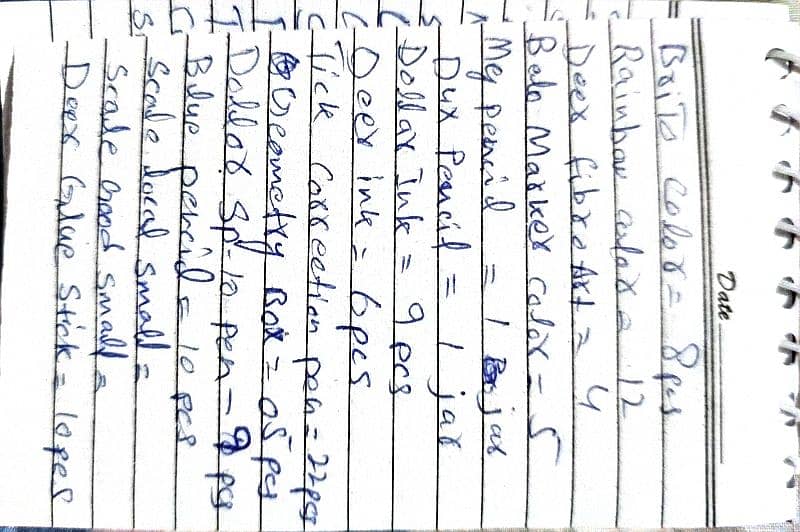 Date
Brito Color = 8 pcs
Rainbow color = 12
Deer fibre Art = 4
Balo Marker Color = 5
My pencil = 1 jar
Dux Pencil = 1 jar
Dollar Ink = 9 pcs
Deer ink = 6 pcs
Tick Correction pen = 22 pcs
Geometry Box = 05 pcs
Dollar Sp-10 pen - 9 pcs
Blue pencil = 10 pcs
Scale local small =
Scale Good small =
Deer Glue Stick = 10 pcs